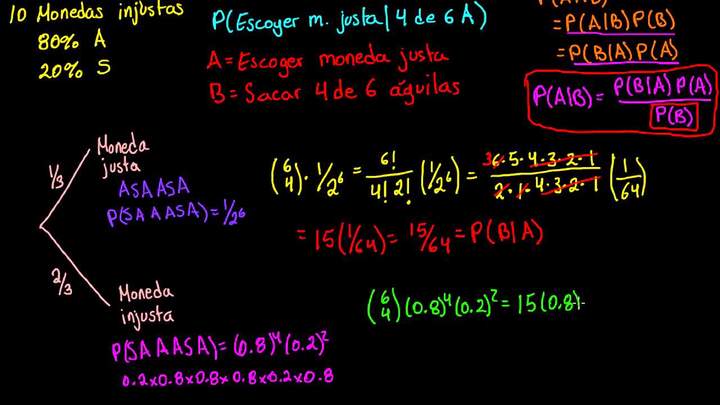 10 Monedas injustas
80% A
20% S
P(Escoger m. justa | 4 de 6 A)
A = Escoger moneda justa
B = Sacar 4 de 6 águilas
= P(A|B) P(B)
= P(B|A) P(A)
P(A|B) = P(B|A) P(A) / P(B)
1/3
Moneda
justa
ASAASA
P(SAAASA) = 1/2⁶
2/3
Moneda
injusta
P(SAAASA) = (0.8)⁴(0.2)²
0.2x0.8x0.8x0.8x0.2x0.8
(6 4) · 1/2⁶ = 6!/4!2! (1/2⁶) = 3 6·5·4·3·2·1 / 2·1·4·3·2·1 (1/64)
= 15(1/64) = 15/64 = P(B|A)
(6 4)(0.8)⁴(0.2)² = 15(0.8)